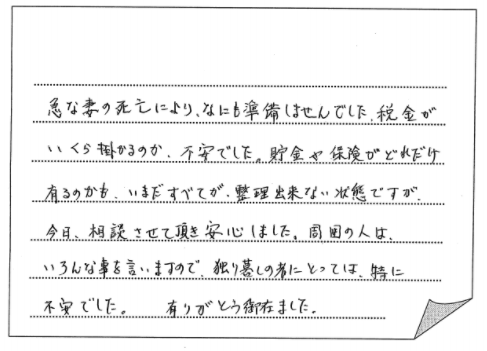 急な妻の死亡により、なにも準備しませんでした、税金が
いくら掛かるのか、不安でした。貯金や保険がどれだけ
有るのかも、いまだすべてが、整理出来ない状態ですが、
今日、相談させて頂き安心しました。周囲の人は、
いろんな事を言いますので、独り暮しの者にとっては、特に
不安でした。 有りがとう御在ました。